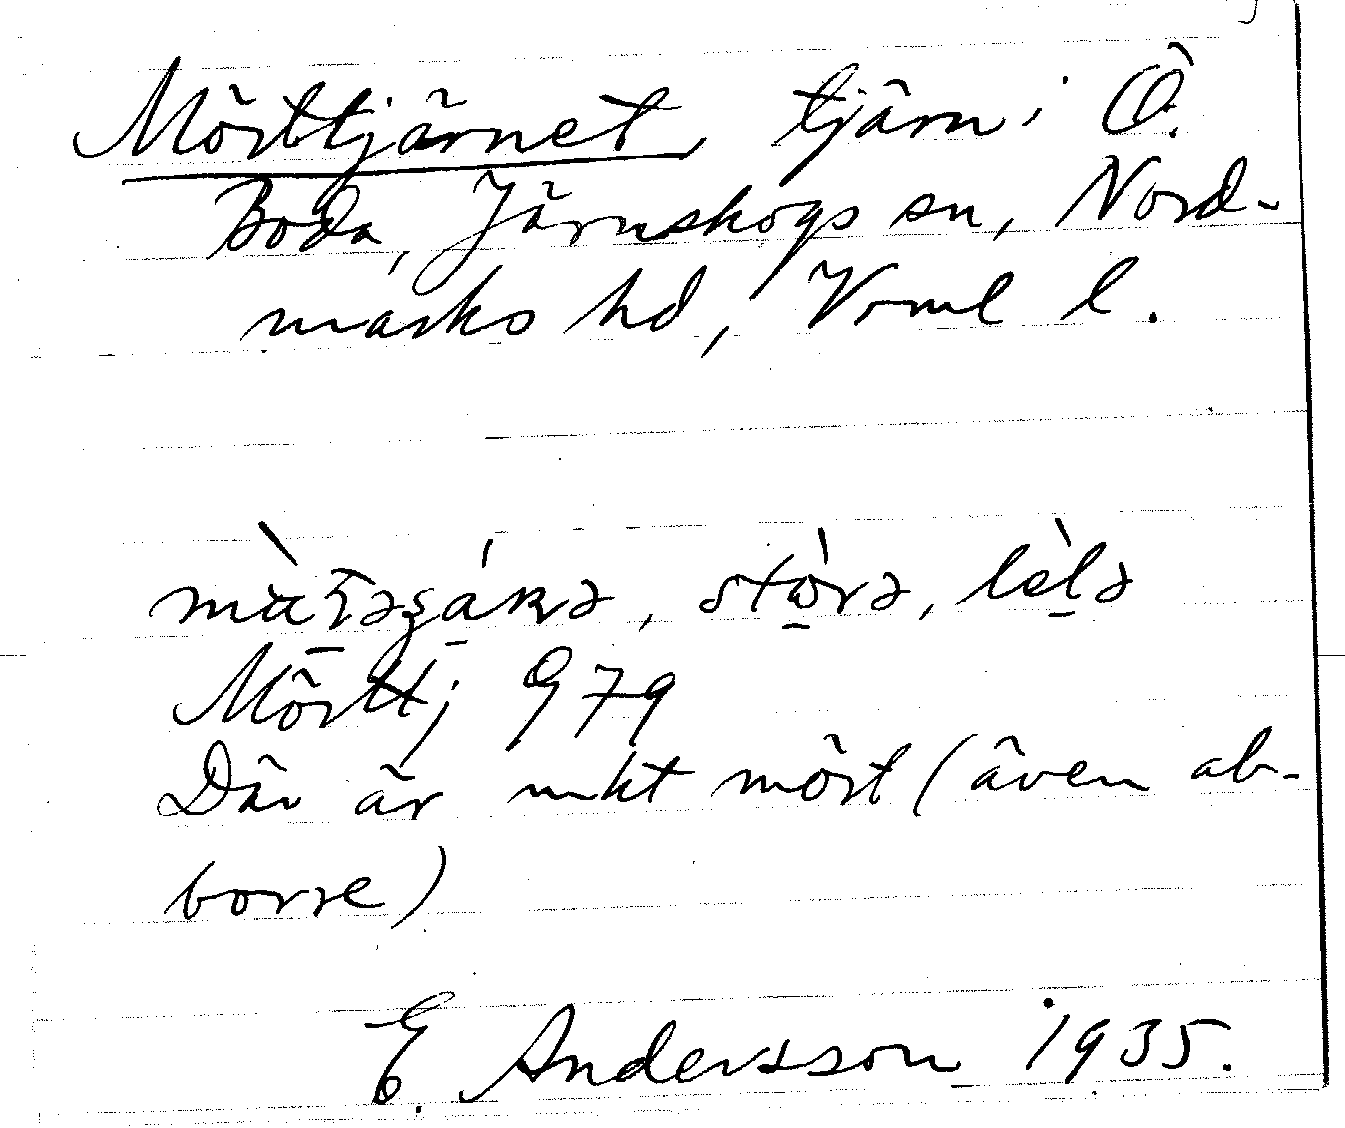 Mörttjärnet, tjärn i Ö.
Boda, Järnskogs sn, Nord-
marks hd, Vrml l.
, lels
Mörttj 979
Där är mkt mört (även ab-
borre)
E. Andersson 1935.